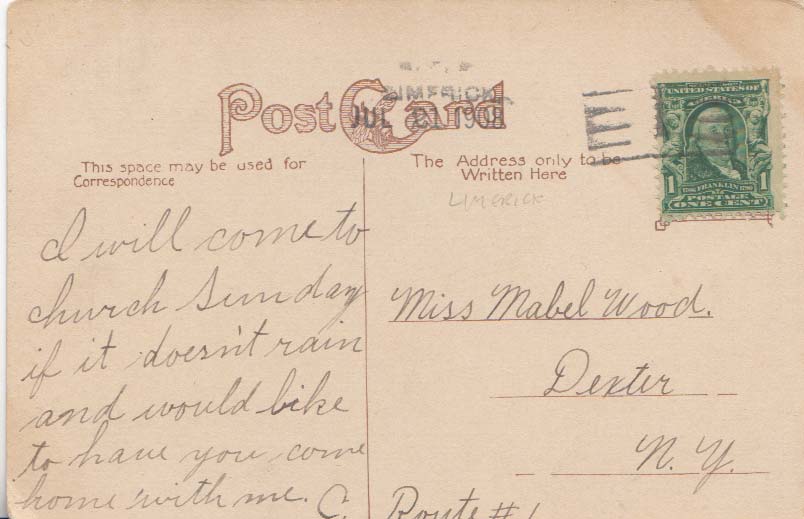 LIMERICK
JUL 21 1908
Post Card
This space may be used for
Correspondence
The Address only to be
Written Here
LIMERICK
UNITED STATES OF
AMERICA
1 FRANKLIN 1
POSTAGE
ONE CENT
I will come to
church Sunday
if it doesn't rain
and would like
to have you come
home with me. C.
Miss Mabel Wood.
Dexter
N. Y.
Route #1